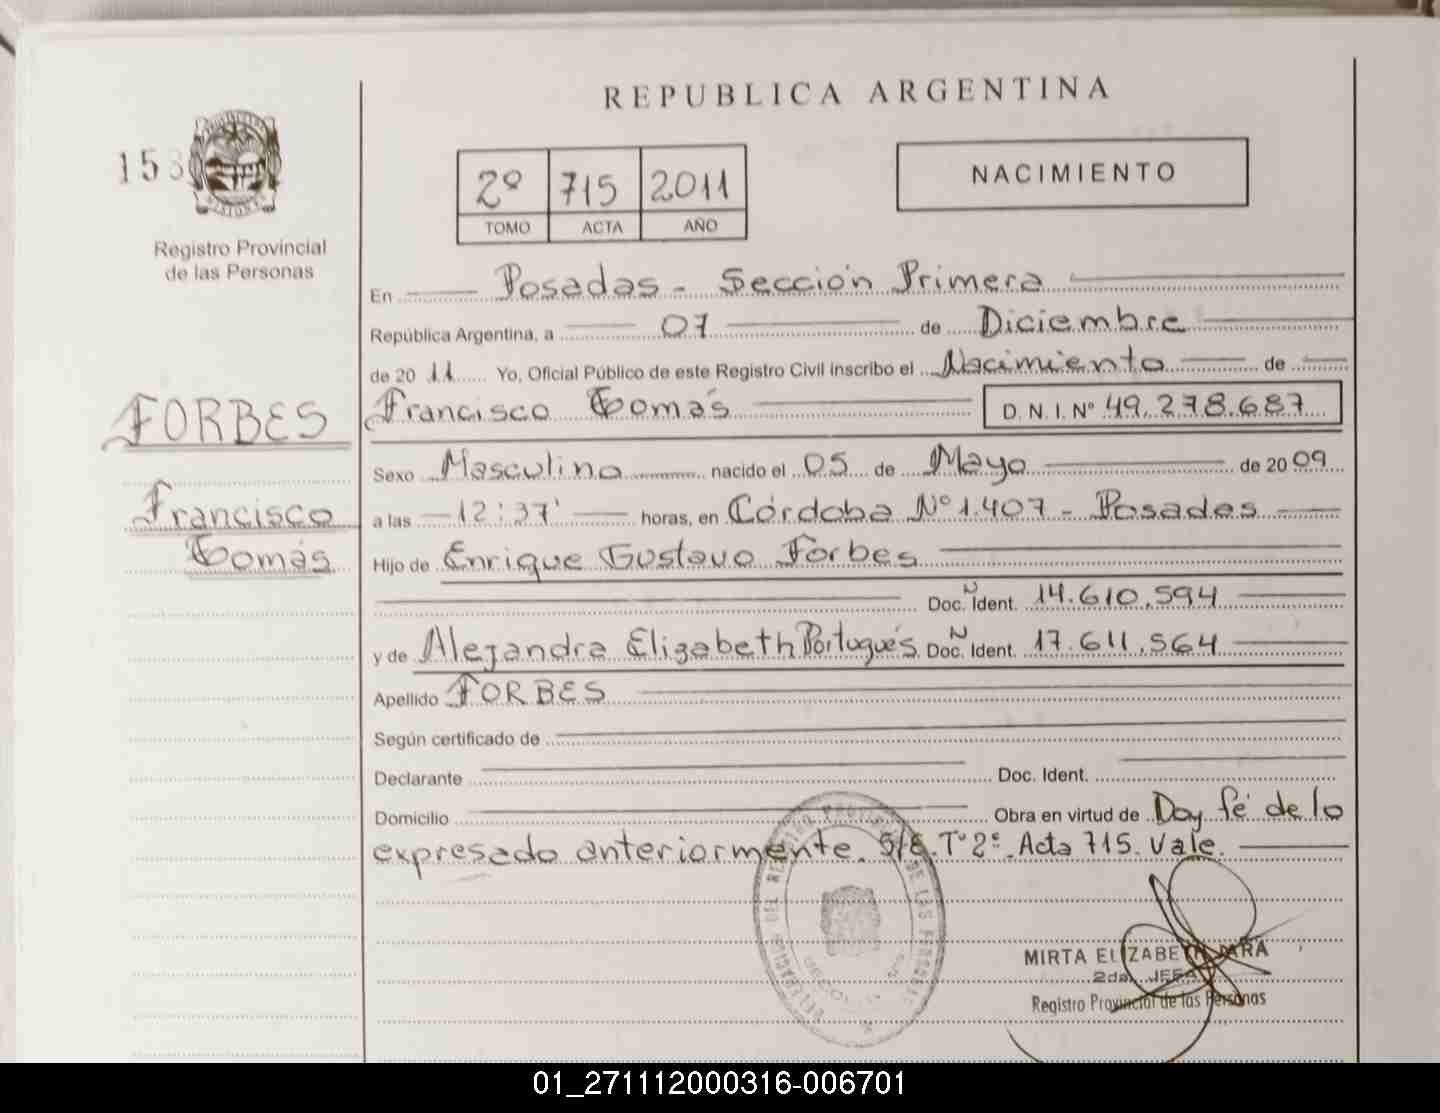 REPUBLICA ARGENTINA
153
2º 715 2011
TOMO ACTA AÑO
NACIMIENTO
Registro Provincial
de las Personas
FORBES
Francisco
Tomás
En Posadas - Sección Primera
República Argentina, a 07 de Diciembre
de 20 11 Yo, Oficial Público de este Registro Civil inscribo el Nacimiento de
Francisco Tomás D.N.I.Nº 49.278.687
Sexo Masculino nacido el 05 de Mayo de 2009
a las 12:37' horas, en Córdoba Nº 1.407 - Posadas
Hijo de Enrique Gustavo Forbes
Doc. N Ident. 14.610.594
y de Alejandra Elizabeth Portugués Doc. N Ident. 17.611.564
Apellido FORBES
Según certificado de
Declarante Doc. Ident.
Domicilio Obra en virtud de Doy fé de lo
expresado anteriormente. S/E. Tº 2º. Acta 715. Vale.
MIRTA ELIZABETH JARA
2da. JEFA
Registro Provincial de las Personas
01_271112000316-006701